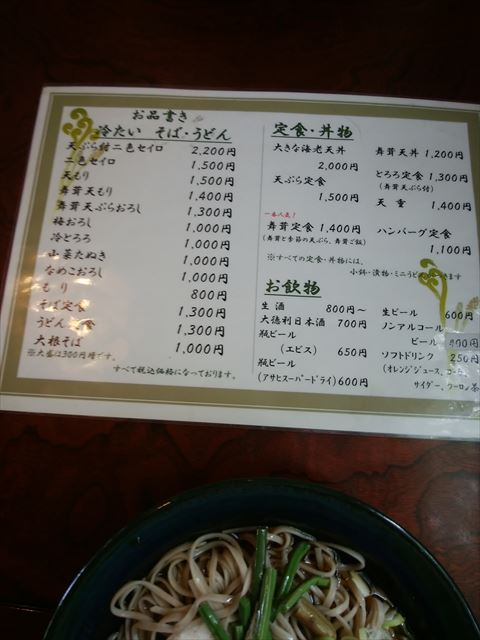 お品書き
冷たい そば・うどん
天ぷら付二色セイロ 2,200円
二色セイロ 1,500円
天もり 1,500円
舞茸天もり 1,400円
舞茸天ぷらおろし 1,300円
梅おろし 1,000円
冷とろろ 1,000円
山菜たぬき 1,000円
なめこおろし 1,000円
もり 800円
そば定食 1,300円
うどん定食 1,300円
大根そば 1,000円
※大盛は300円増です。
すべて税込価格になっております。
定食・丼物
大きな海老天丼
2,000円
天ぷら定食
1,500円
一番人気!
舞茸定食 1,400円
(舞茸と季節の天ぷら、舞茸ご飯)
舞茸天丼 1,200円
とろろ定食 1,300円
(舞茸天ぷら付)
天重 1,400円
ハンバーグ定食
1,100円
※すべての定食・丼物には、
小鉢・漬物・ミニうどん きます
お飲物
生酒 800円~
大徳利日本酒 700円
瓶ビール
(エビス) 650円
瓶ビール
(アサヒスーパードライ)600円
生ビール 600円
ノンアルコール
ビール 400円
ソフトドリンク 250円
(オレンジジュース、コーラ、
サイダー、ウーロン茶